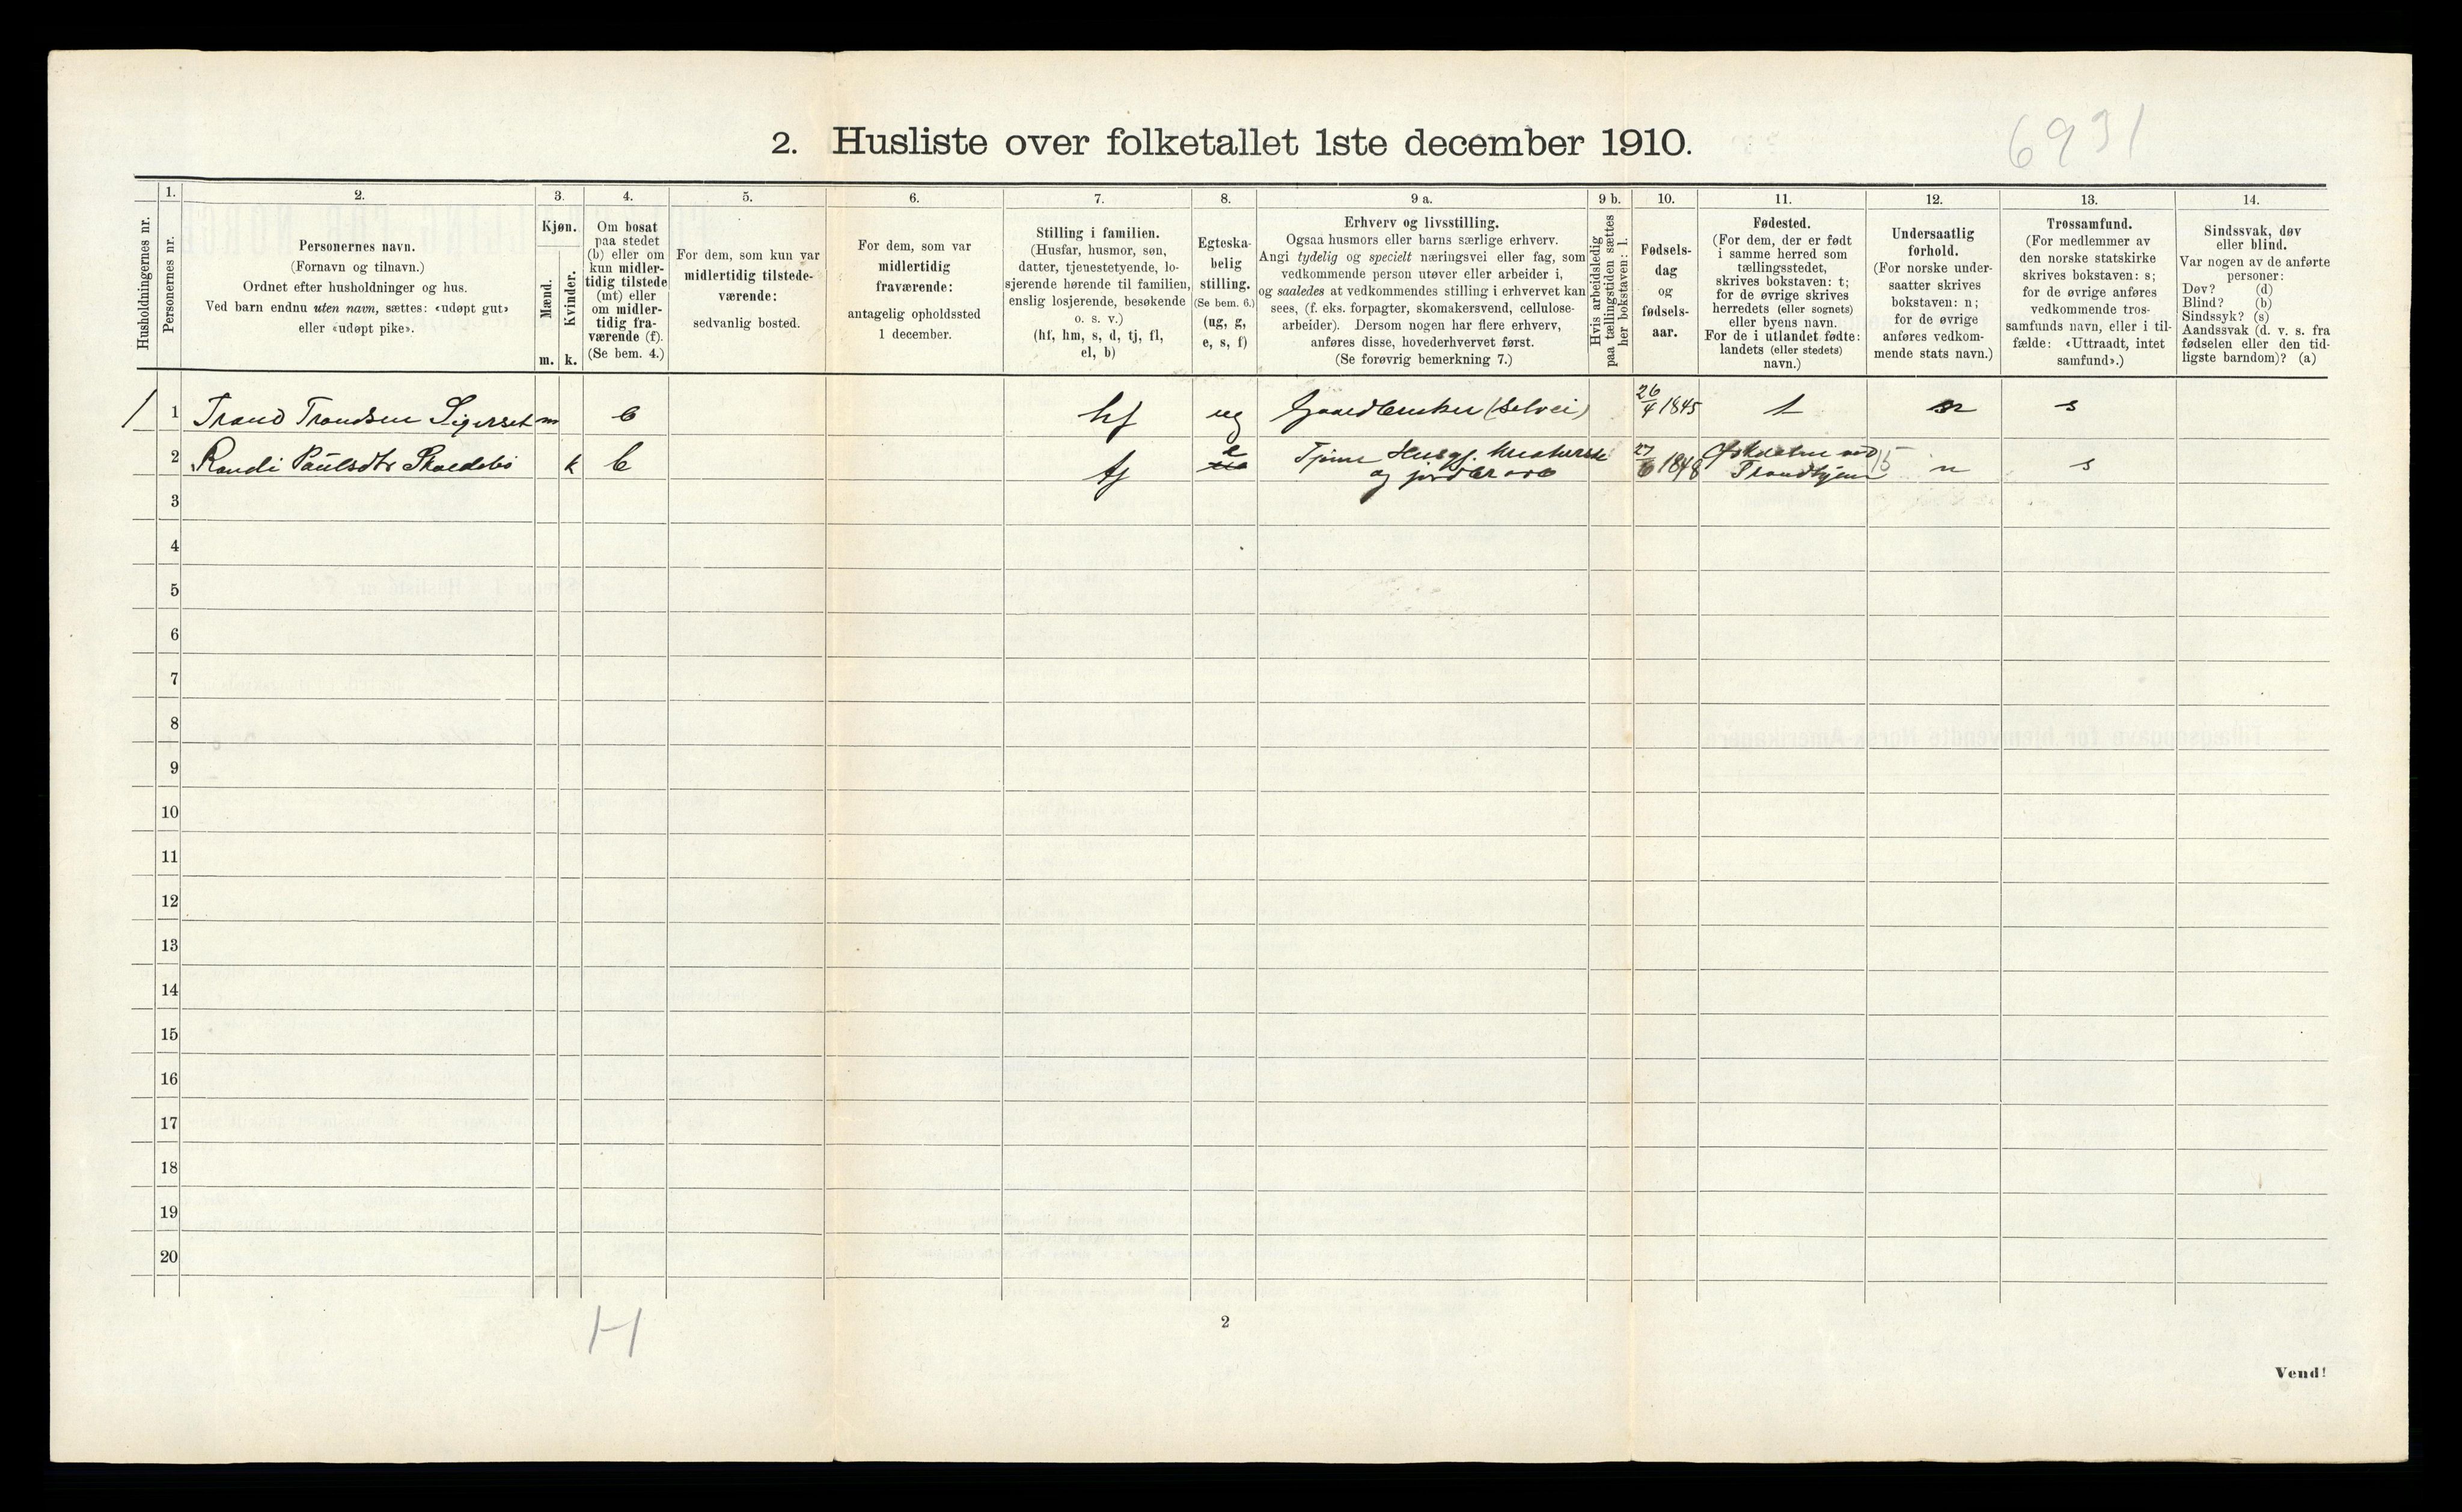 6931
2. Husliste over folketallet 1ste december 1910.
Husholdningernes nr.
1.
Personernes nr.
2.
Personernes navn.
(Fornavn og tilnavn.)
Ordnet efter husholdninger og hus.
Ved barn endnu uten navn, sættes: «udøpt gut»
eller «udøpt pike».
3.
Kjøn.
Mænd.
Kvinder.
m. k.
4.
Om bosat
paa stedet
(b) eller om
kun midler-
tidig tilstede
(mt) eller
om midler-
tidig fra-
værende (f).
(Se bem. 4.)
5.
For dem, som kun var
midlertidig tilstede-
værende:
sedvanlig bosted.
6.
For dem, som var
midlertidig
fraværende:
antagelig opholdssted
1 december.
7.
Stilling i familien.
(Husfar, husmor, søn,
datter, tjenestetyende, lo-
sjerende hørende til familien,
enslig losjerende, besøkende
o. s. v.)
(hf, hm, s, d, tj, fl,
el, b)
8.
Egteska-
belig
stilling.
(Se bem. 6.)
(ug, g,
e, s, f)
9 a.
Erhverv og livsstilling.
Ogsaa husmors eller barns særlige erhverv.
Angi tydelig og specielt næringsvei eller fag, som
vedkommende person utøver eller arbeider i,
og saaledes at vedkommendes stilling i erhvervet kan
sees, (f. eks. forpagter, skomakersvend, cellulose-
arbeider). Dersom nogen har flere erhverv,
anføres disse, hovederhvervet først.
(Se forøvrig bemerkning 7.)
9 b.
Hvis arbeidsledig
paa tællingstiden sættes
her bokstaven: l.
10.
Fødsels-
dag
og
fødsels-
aar.
11.
Fødested.
(For dem, der er født
i samme herred som
tællingsstedet,
skrives bokstaven: t;
for de øvrige skrives
herredets (eller sognets)
eller byens navn.
For de i utlandet fødte:
landets (eller stedets)
navn.)
12.
Undersaatlig
forhold.
(For norske under-
saatter skrives
bokstaven: n;
for de øvrige
anføres vedkom-
mende stats navn.)
13.
Trossamfund.
(For medlemmer av
den norske statskirke
skrives bokstaven: s;
for de øvrige anføres
vedkommende tros-
samfunds navn, eller i til-
fælde: «Uttraadt, intet
samfund».)
14.
Sindssvak, døv
eller blind.
Var nogen av de anførte
personer:
Døv? (d)
Blind? (b)
Sindssyk? (s)
Aandssvak (d. v. s. fra
fødselen eller den tid-
ligste barndom)? (a)
1 1 Trand Trandsen Sigerset m b hf ug Gaardbruker (Selvei) 26/4 1845 t n s
2 Randi Paulsdtr k b tj e og 27/6 1848 Trondhjem 15 n s
3
4
5
6
7
8
9
10
11
12
13
14
15
16
17
18
19
20
H
2
Vend!